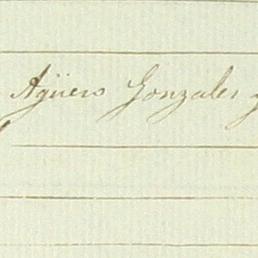 Agüero Gonzales y